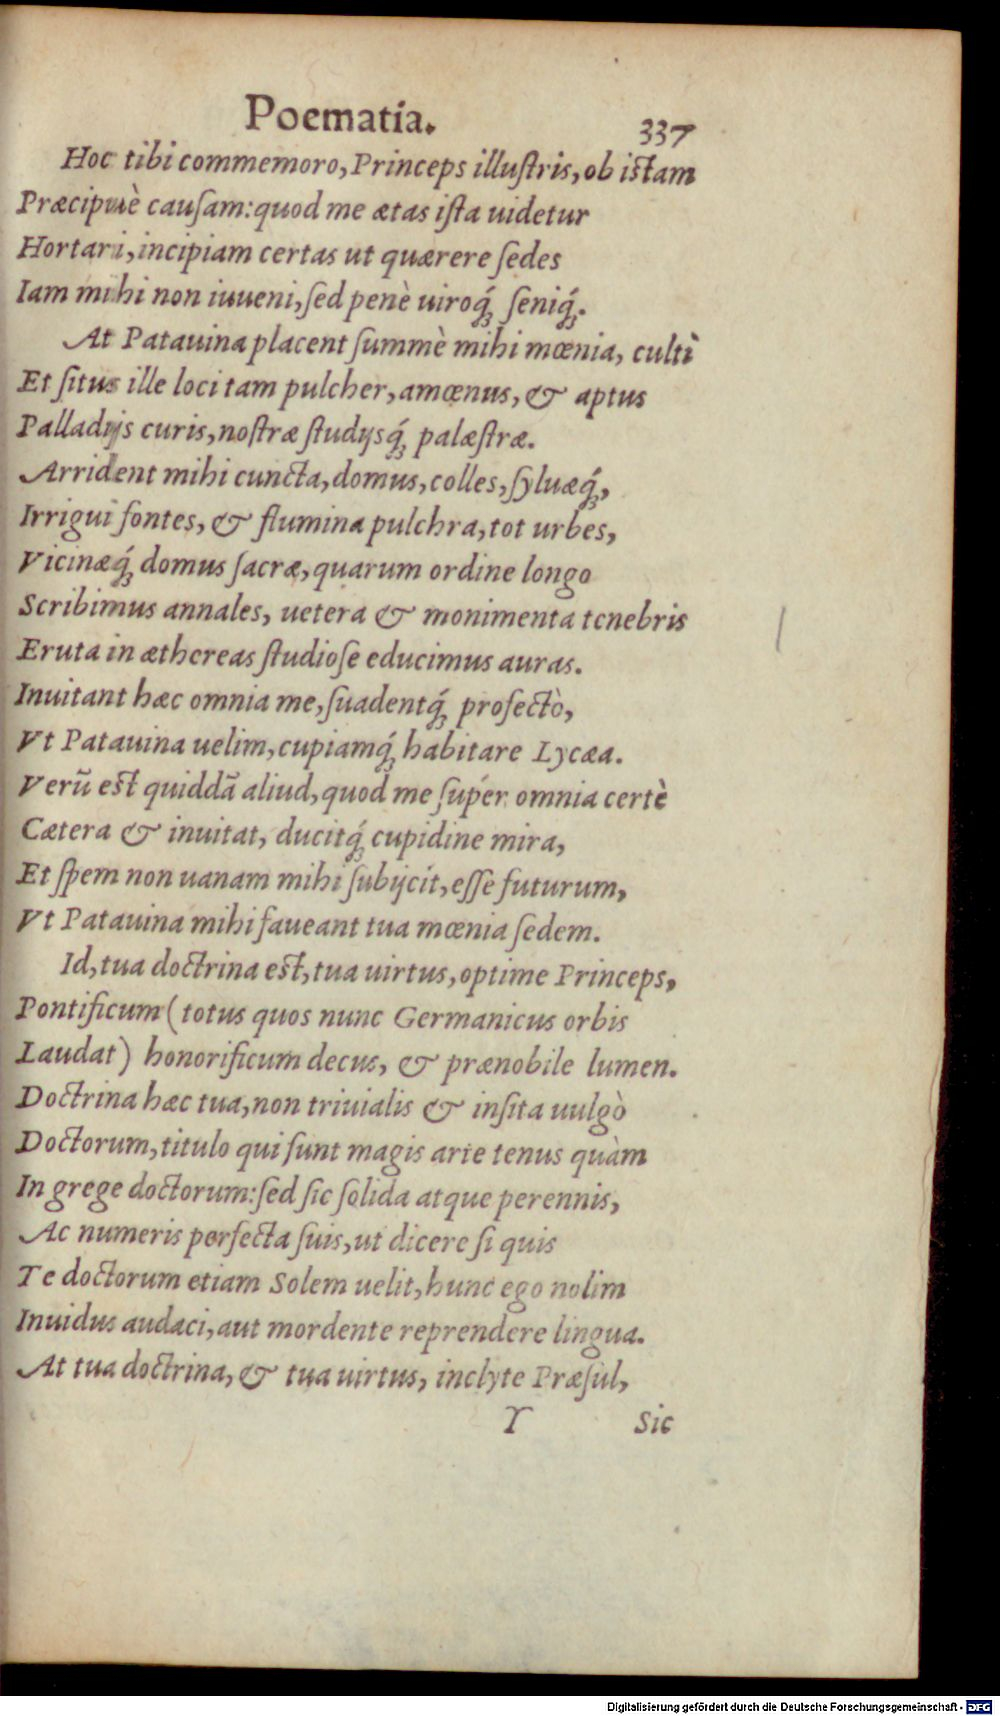 Poematia. 337
Hoc tibi commemoro, Princeps illuſtris, ob iſtam
Præcipuè cauſam: quod me ætas iſta uidetur
Hortari, incipiam certas ut quærere ſedes
Iam mihi non iuueni, ſed penè uiroq́; ſeniq́;.
At Patauina placent ſummè mihi mœnia, culti
Et ſitus ille loci tam pulcher, amœnus, & aptus
Palladijs curis, noſtræ ſtudijsq́; palæſtræ.
Arrident mihi cuncta, domus, colles, ſyluæq́;,
Irrigui fontes, & flumina pulchra, tot urbes,
Vicinæq́; domus ſacræ, quarum ordine longo
Scribimus annales, uetera & monimenta tenebris
Eruta in æthereas ſtudioſe educimus auras.
Inuitant hæc omnia me, ſuadentq́; profectò,
Vt Patauina uelim, cupiamq́; habitare Lycæa.
Verũ eſt quiddã aliud, quod me ſuper omnia certè
Cætera & inuitat, ducitq́; cupidine mira,
Et ſpem non uanam mihi ſubijcit, eſſe futurum,
Vt Patauina mihi faueant tua mœnia ſedem.
Id, tua doctrina eſt, tua uirtus, optime Princeps,
Pontificum (totus quos nunc Germanicus orbis
Laudat) honorificum decus, & prænobile lumen.
Doctrina hæc tua, non triuialis & inſita uulgò
Doctorum, titulo qui ſunt magis arte tenus quàm
In grege doctorum: ſed ſic ſolida atque perennis,
Ac numeris perfecta ſuis, ut dicere ſi quis
Te doctorum etiam Solem uelit, hunc ego nolim
Inuidus audaci, aut mordente reprendere lingua.
At tua doctrina, & tua uirtus, inclyte Præſul,
Y Sic
Digitalisierung gefördert durch die Deutsche Forschungsgemeinschaft - DFG